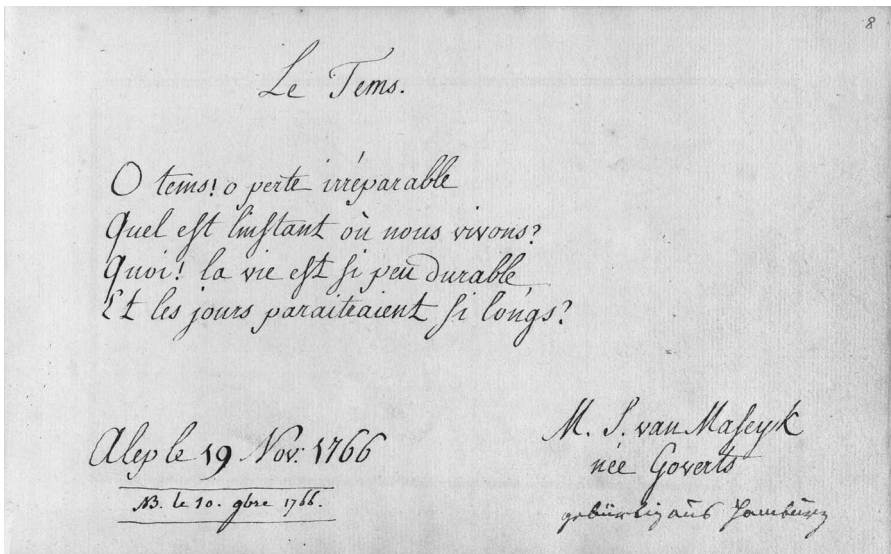 8
Le Tems.
O tems! o perte irréparable
Quel est l'instant où nous vivons?
Quoi! la vie est si peu durable
Et les jours paraitraient si longs?
Alep le 19 Nov: 1766
NB. le 10. 9bre 1766.
M. S. van Maseyk
née Goverts
gebürtig aus Hamburg